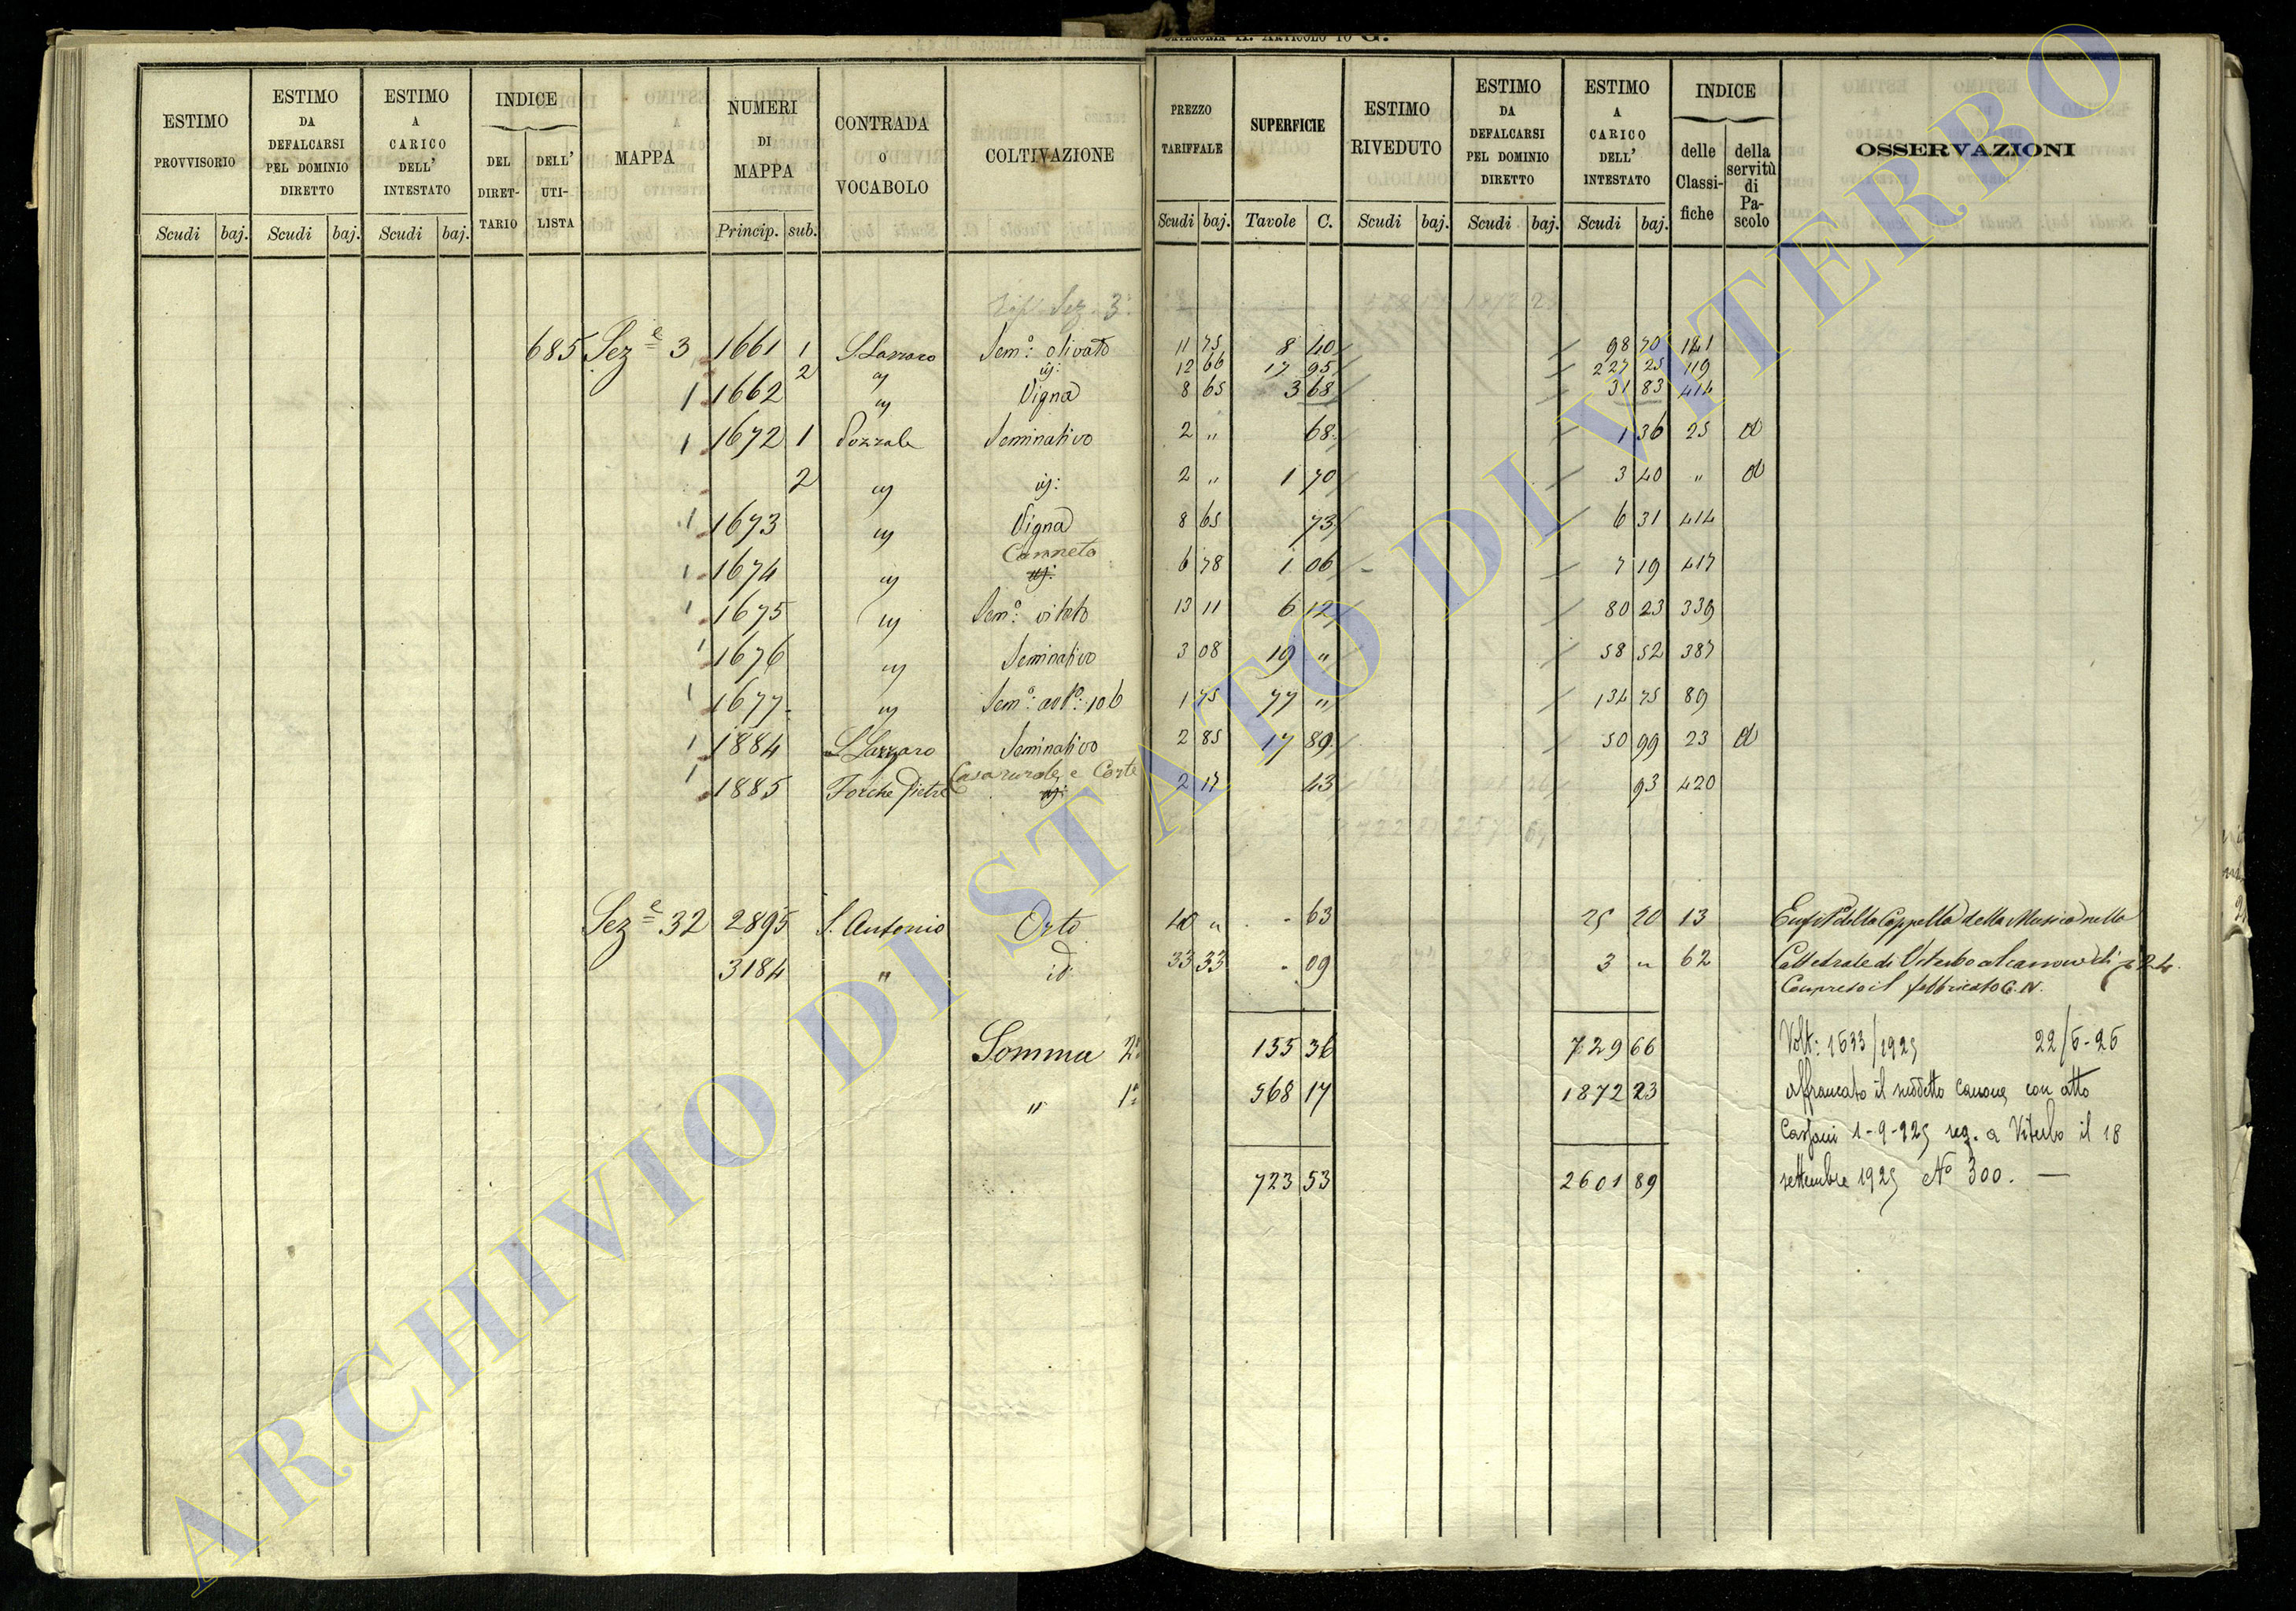 CATEGORIA II. ARTICOLO 10 G.
ESTIMO PROVVISORIO | ESTIMO DA DEFALCARSI PEL DOMINIO DIRETTO | ESTIMO A CARICO DELL' INTESTATO | INDICE DEL DIRETTARIO | DELL' UTILISTA | MAPPA | NUMERI DI MAPPA | CONTRADA O VOCABOLO | COLTIVAZIONE | PREZZO TARIFFALE | SUPERFICIE | ESTIMO RIVEDUTO | ESTIMO DA DEFALCARSI PEL DOMINIO DIRETTO | ESTIMO A CARICO DELL' INTESTATO | INDICE delle Classifiche | della servitù di Pascolo | OSSERVAZIONI
Scudi | baj. | Scudi | baj. | Scudi | baj. | Princip. | sub. | Scudi | baj. | Tavole | C. | Scudi | baj. | Scudi | baj. | Scudi | baj.
Sez. 3ª
685 Sez.e 3 1661 1 S. Lazzaro Sem.o olivato 11 75 8 40 98 70 141
2 " id: 12 66 17 95 227 25 119
1 1662 " Vigna 8 65 3 68 31 83 414
1 1672 1 Pozzale Seminativo 2 " 68 1 36 25 d
2 " id: 2 " 1 70 3 40 " d
1 1673 " Vigna 8 65 73 6 31 414
Canneto
1 1674 " id: 6 78 1 06 7 19 417
1 1675 " Sem.o vitato 13 11 6 12 80 23 339
1 1676 " Seminativo 3 08 19 " 58 52 387
1 1677 " Sem.o 106 1 75 77 " 134 75 89
1 1884 S. Lazzaro Seminativo 2 85 17 89 50 99 23 d
Casa rurale e Corte
1 1885 Forche Pietre id: 2 17 43 93 420
Sez.e 32 2895 S. Antonio Orto 40 " - 63 25 20 13 Enfit. della Cappella della Musica nella
3184 " id 33 33 - 09 3 " 62 Cattedrale di Viterbo al canone di 24.
Compreso il fabbricato C. N.
Somma 2ª 155 36 729 66 Volt: 1633/1925 22/5-26
" 1ª 568 17 1872 23 affrancato il suddetto canone, con atto
1-9-925 reg. a Viterbo il 18
723 53 2601 89 settembre 1925 No 300. —
ARCHIVIO DI STATO DI VITERBO